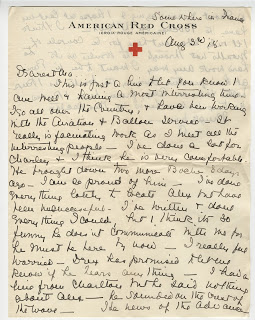 Somewhere in France
AMERICAN RED CROSS
(CROIX ROUGE AMERICAINE)
Aug 3rd, 18.
Dearest
This is just a line to let you know I
am well & having a most interesting time.
I go all over the Country, & have been working
with the Aviation & Balloon Service - It
really is fascinating work as I meet all the
interesting people - I've done a lot for
Charley & I think he is very comfortable.
He brought down two more Boche
ago - I am so proud of him - I've done
everything to locate Alec but have
been unsuccessful - I've written & done
everything I could, but I think it so
funny he doesn't communicate with me for
he must be here by now - I really feel
worried - has promised to let me
know if he hears anything - I had a
line from Charlton but he said nothing
about Alec - he is on the crest of
the wave The news of the advance